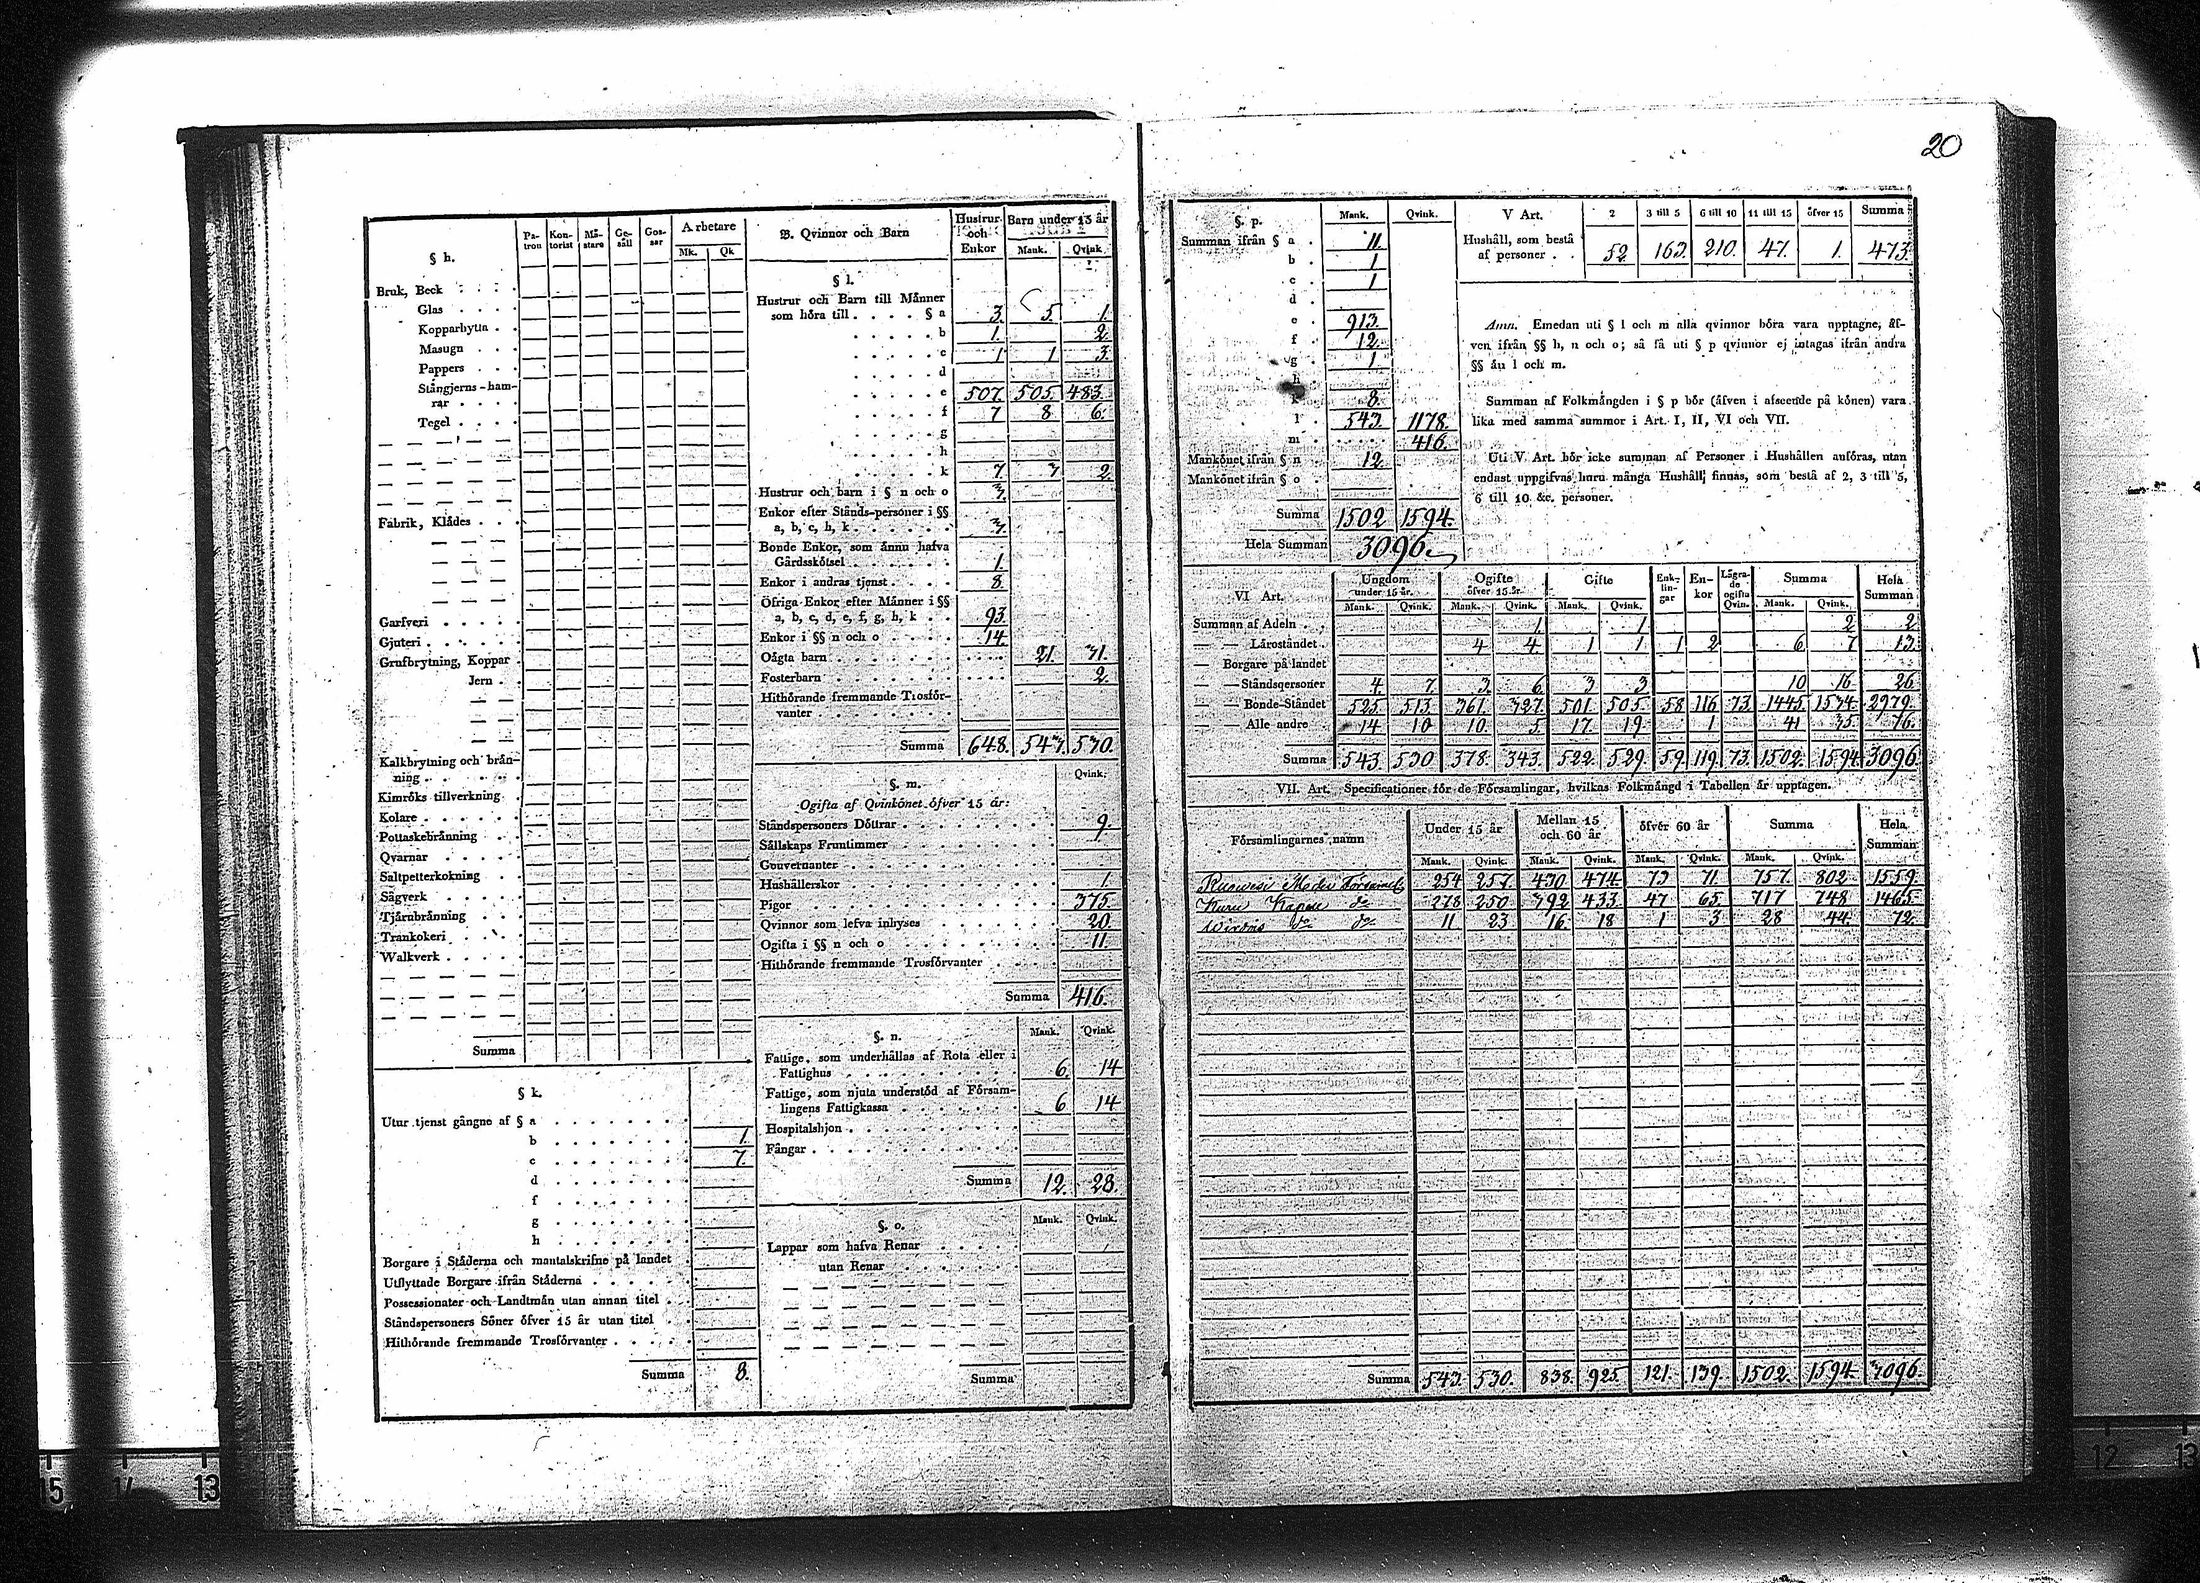 20
§ h.
Pa-tron Kon-torist Mä-stare Ge-säll Gos-sar Arbetare
Mk. Qk
Bruk, Beck . . . .
Glas . . . .
Kopparhytta . .
Masugn . . .
Pappers . . .
Stångjerns-ham-
rar . . . .
Tegel . . . .
Fabrik, Klädes . . .
Garfveri . . . . .
Gjuteri . . . . .
Grufbrytning, Koppar .
Jern . .
Kalkbrytning och brån-
ning . . . . .
Kimröks tillverkning .
Kolare . . . . .
Pottaskebränning . .
Qvarnar . . . . .
Saltpetterkokning . .
Sågverk . . . . .
Tjärnbränning . . .
Trankokeri . . . .
Walkverk . . . . .
Summa
§ k.
Utur tjenst gångne af § a . . . . . . . .
b . . . . . . . . 1.
c . . . . . . . . 7.
d . . . . . . . .
f . . . . . . . .
g . . . . . . . .
h . . . . . . . .
Borgare i Städerna och mantalskrifne på landet .
Utflyttade Borgare ifrån Städerna . . . . .
Possessionater och Landtmän utan annan titel . .
Ståndspersoners Söner öfver 15 år utan titel . .
Hithörande fremmande Trosförvanter . . . . .
Summa 8.
B. Qvinnor och Barn Hustrur och Enkor Barn under 15 år
Mank. Qvink
§ l.
Hustrur och Barn till Männer
som höra till . . . . § a 3. 5. 1.
b 1. 2.
c 1 1 3.
d
e 507. 505. 483.
f 7 8 6.
g
h
k 7. 7 2.
Hustrur och barn i § n och o 3.
Enkor efter Stånds-personer i §§
a, b, c, h, k . . . . . . 3.
Bonde Enkor, som ännu hafva
Gårdsskötsel . . . . . . 1.
Enkor i andras tjenst . . . . 8.
Öfriga Enkor efter Männer i §§
a, b, c, d, e, f, g, h, k . . 93.
Enkor i §§ n och o . . . . 14.
Oägta barn . . . . . . . . 21. 31.
Fosterbarn . . . . . . . . 2.
Hithörande fremmande Trosför-
vanter . . . . . . . .
Summa 648. 543. 530.
§. m. Qvink.
Ogifta af Qvinkönet öfver 15 år:
Ståndspersoners Döttrar . . . . . . . . 9.
Sällskaps Fruntimmer . . . . . . . .
Gouvernanter . . . . . . . . . .
Hushållerskor . . . . . . . . . . 1.
Pigor . . . . . . . . . . . . 375.
Qvinnor som lefva inhyses . . . . . . 20.
Ogifta i §§ n och o . . . . . . . . 11.
Hithörande fremmande Trosförvanter . . . .
Summa 416.
§. n. Mank. Qvink.
Fattige, som underhållas af Rota eller i
Fattighus . . . . . . . . . 6 14
Fattige, som njuta understöd af Försam-
lingens Fattigkassa . . . . . . . 6 14
Hospitalshjon . . . . . . . . . .
Fångar . . . . . . . . . . . .
Summa 12. 28.
§. o. Mank. Qvink.
Lappar som hafva Renar . . . . .
utan Renar . . . . . . .
Summa
§. p. Mank. Qvink.
Summan ifrån § a . 11.
b . 1
c . 1
d .
e . 913.
f . 12.
g . 1
h
k . 8.
l . 543. 1178.
m . 416.
Mankönet ifrån § n . 12.
Mankönet ifrån § o .
Summa 1502 1594.
Hela Summan 3096.
V Art. 2 3 till 5 6 till 10 11 till 15 öfver 15 Summa
Hushåll, som bestå
af personer . . 52. 163. 210. 47. 1. 473.
Anm. Emedan uti § l och m alla qvinnor böra vara upptagne, äf-
ven ifrån §§ h, n och o; så få uti § p qvinnor ej intagas ifrån andra
§§ än l och m.
Summan af Folkmängden i § p bör (äfven i afseende på könen) vara
lika med samma summor i Art. I, II, VI och VII.
Uti V Art. bör icke summan af Personer i Hushållen anföras, utan
endast uppgifvas huru många Hushåll finnas, som bestå af 2, 3 till 5,
6 till 10 &c. personer.
VI Art. Ungdom under 15 år. Ogifte öfver 15 år. Gifte Enk-lin-gar En-kor Lägra-de ogifta Qvin. Summa Hela Summan
Mank. Qvink. Mank. Qvink. Mank. Qvink. Mank. Qvink.
Summan af Adeln . . 1 1 2 2
— — Läroståndet . 4 4 1 1 1 2 6 7 13.
— Borgare på landet
— — Ståndspersoner 4. 7. 3. 6 3 3 10 16 26
— — Bonde-Ståndet 525. 513. 361. 327. 501. 505. 58 116 73. 1445. 1534. 2979.
— — Alle andre . 14 10 10. 5. 17. 19. 1 41 35. 76.
Summa 543. 530 378. 343. 522. 529. 59. 119. 73. 1502. 1594. 3096.
VII. Art. Specificationer för de Församlingar, hvilkas Folkmängd i Tabellen är upptagen.
Församlingarnes namn Under 15 år Mellan 15 och 60 år öfver 60 år Summa Hela Summan
Mank. Qvink. Mank. Qvink. Mank. Qvink. Mank. Qvink.
Ruowesi Moder Församl 254 257. 430 474. 73 71 757. 802 1559.
Kuru Kapell do 278 250 392 433. 47 65. 717 748 1465.
Wirdois do do 11 23 16. 18 1 3 28 44. 72.
Summa 543. 530. 838. 925. 121. 139. 1502. 1594. 3096.
15 14 13
12 13